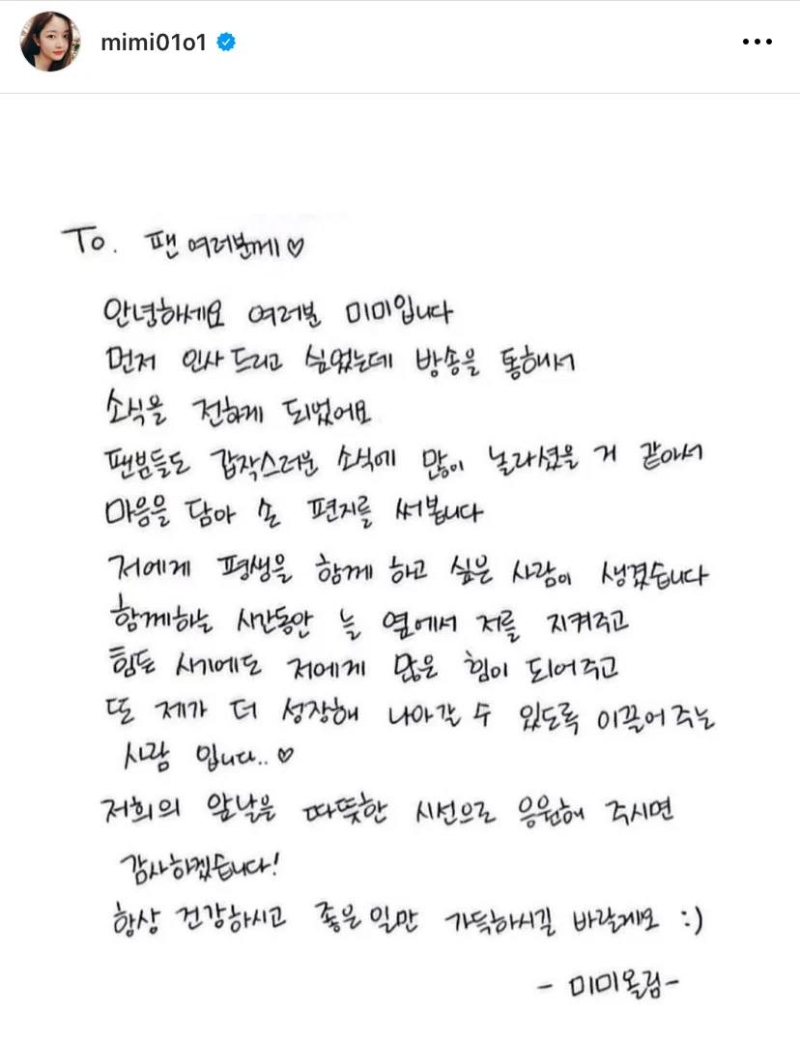 mimi01o1
To. 팬 여러분께♡
안녕하세요 여러분 미미입니다
먼저 인사 드리고 싶었는데 방송을 통해서
소식을 전하게 되었어요
팬분들도 갑작스러운 소식에 많이 놀라셨을 거 같아서
마음을 담아 손 편지를 써봅니다
저에게 평생을 함께 하고 싶은 사람이 생겼습니다
함께하는 시간동안 늘 옆에서 저를 지켜주고
힘든 시기에도 저에게 많은 힘이 되어주고
또 제가 더 성장해 나아갈 수 있도록 이끌어 주는
사람 입니다..♡
저희의 앞날을 따뜻한 시선으로 응원해 주시면
감사하겠습니다!
항상 건강하시고 좋은 일만 가득하시길 바랄게요 :)
- 미미올림-